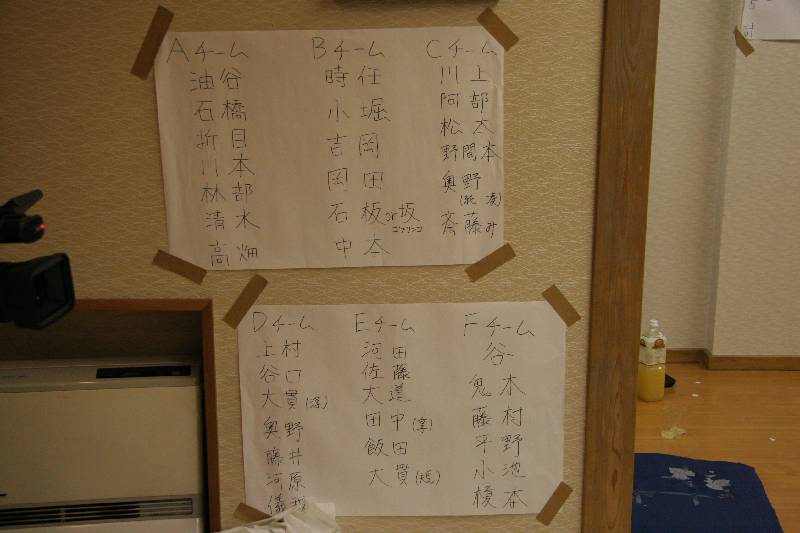 Aチーム
油谷
石橋
折目
川本
林部
清水
高畑
Bチーム
時任
小堀
吉岡
岡田
石板or坂
中本
Cチーム
川上
阿部
松本
野間本
奥野
斎藤み
Dチーム
上村
谷口
大貫(淳)
奥野
藤井
河原
儀我
Eチーム
河田
佐藤
大道
田中(寧)
飯田
大貫(短)
Fチーム
谷
鬼木
藤村
平野
小池
榎本